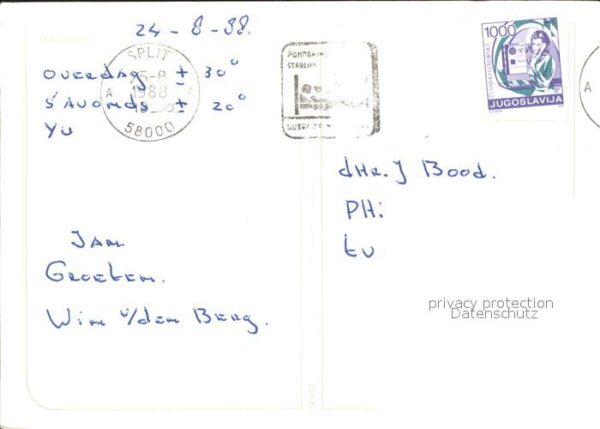 24 - 8 - 88.
SPLIT
25-8
1988
A
58000
OVERDAG ± 30°
S'AVONDS ± 20°
YU
POMOZIMO
STARIMA
1000
JUGOSLAVIJA
A
dHr. J Bood.
PH:
tv
JAM
GROETEN.
Wim v/den Berg.
privacy protection
Datenschutz